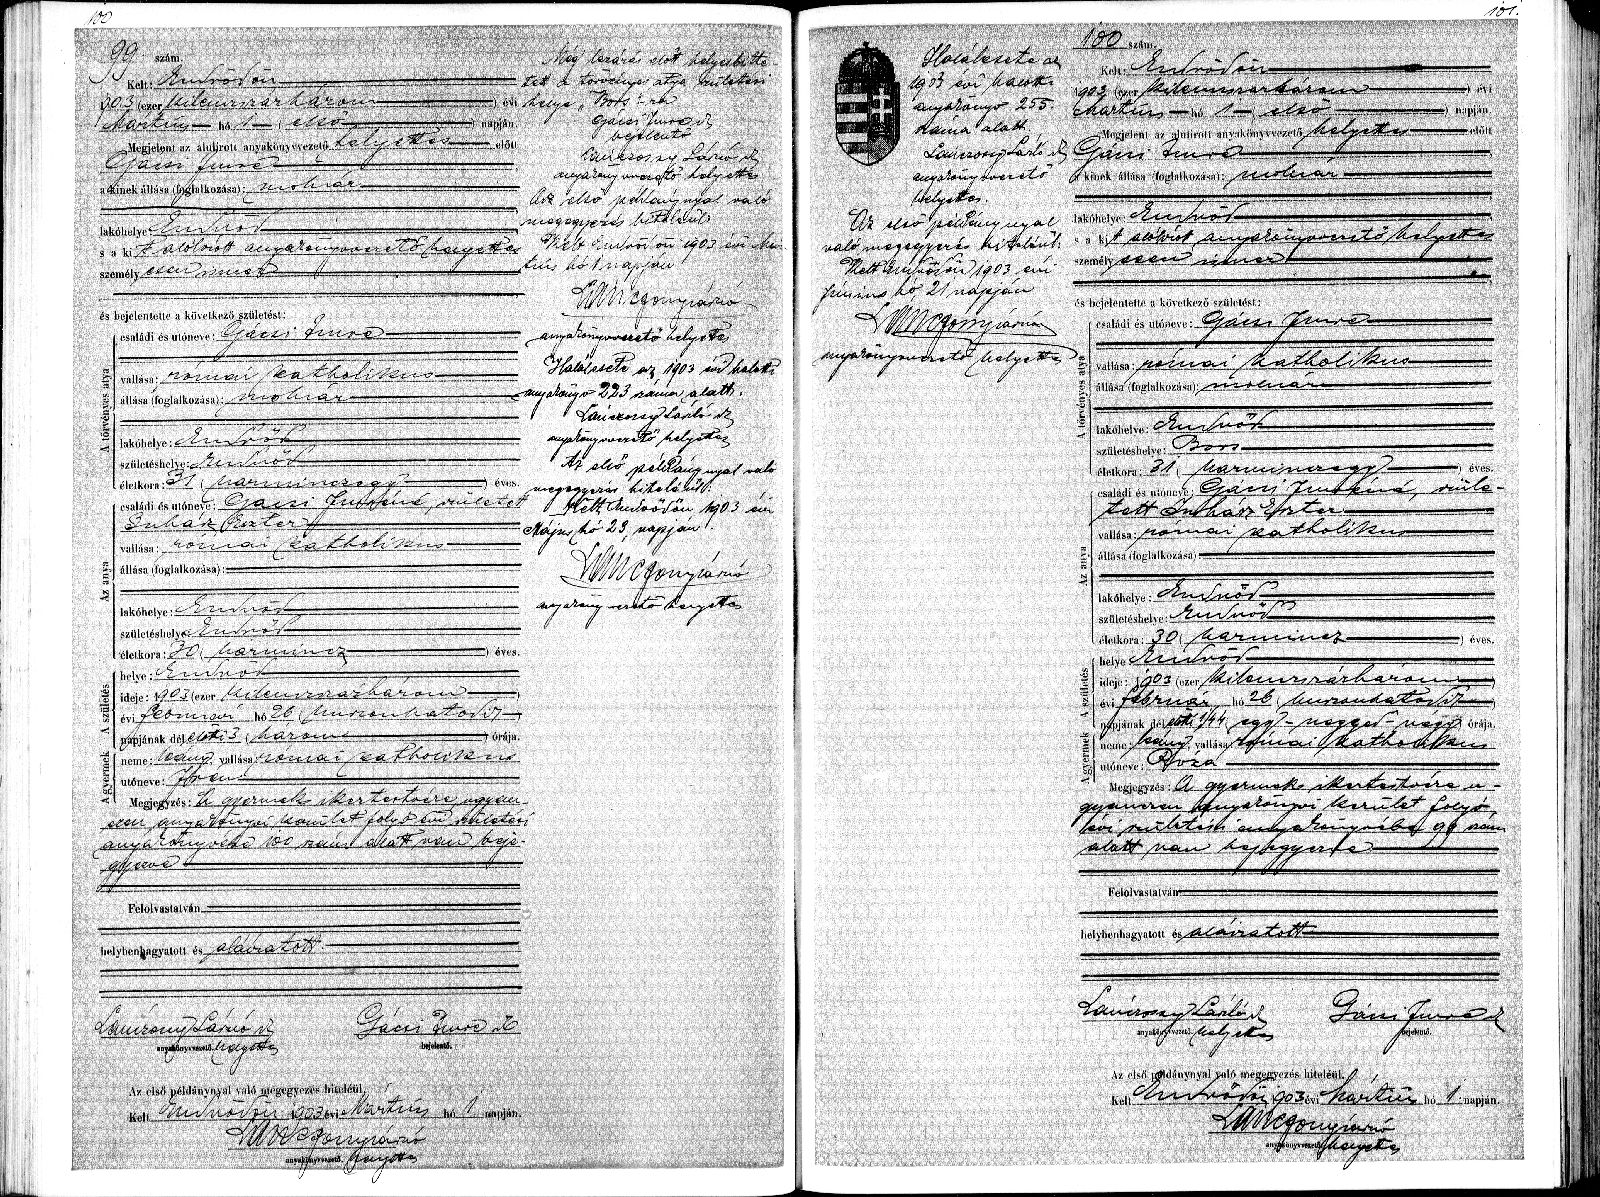 100
99 szám.
Kelt: Endrődön
1903 (ezer kilenczszázhárom) évi
Martius hó 1 (első) napján.
Megjelent az alulirott anyakönyvvezető helyettes előtt
Gácsi Imre
a kinek állása (foglalkozása): molnár
lakóhelye: Endrőd
s a kit alólirott anyakönyvvezető helyettes
személyesen ismer
és bejelentette a következő születést:
A törvényes atya
családi és utóneve: Gácsi Imre
vallása: római katholikus
állása (foglalkozása): molnár
lakóhelye: Endrőd
születéshelye: Endrőd
életkora: 31 (harminczegy) éves.
Az anya
családi és utóneve: Gácsi Imréné, született
Juhász Eszter
vallása: római katholikus
állása (foglalkozása):
lakóhelye: Endrőd
születéshelye: Endrőd
életkora: 30 (harmincz) éves.
A születés
helye: Endrőd
ideje: 1903 (ezer kilenczszázhárom)
évi február hó 26 (huszonhatodik)
napjának dél előtti 3 (három) órája.
A gyermek
neme: leány, vallása: római katholikus
utóneve:
Megjegyzés: A gyermek ikertestvére ugyan-
ezen anyakönyvi kerület folyó évi születési
anyakönyvébe 100 szám alatt van beje-
gyezve
Felolvastatván,
helybenhagyatott és aláiratott.
Lánczossy László sk
anyakönyvvezető. helyettes
Gácsi Imre sk
bejelentő.
Az első példánynyal való megegyezés hiteléül.
Kelt Endrődön 1903 évi Martius hó 1 napján.
anyakönyvvezető. helyettes
Még lezárás előtt helyesbitte-
tett a törvényes atya születési
helye "Bors"-ra
Gácsi Imre sk
bejelentő
Lánczossy László sk
anyakönyvvezető helyettes
Az első példánynyal való
megegyezés hiteléül.
Kelt Endrődön 1903 évi Mar-
tius hó 1 napján
anyakönyvvezető helyettes
Halálesete az 1903 évi halotti
anyakönyv 223 száma alatt.
Lánczossy László sk
anyakönyvvezető helyettes
Az első példánynyal való
megegyezés hiteléül.
Kelt Endrődön 1903 évi
Május hó 23, napján.
anyakönyvvezető helyettes
101.
Halálesete az
1903 évi halotti
anyakönyv 255
száma alatt.
Lánczossy László sk
anyakönyvvezető
helyettes.
Az első példánynyal
való megegyezés hiteléül.
Kelt Endrődön 1903 évi
Június hó 21 napján
anyakönyvvezető helyettes
100 szám.
Kelt: Endrődön
1903 (ezer kilenczszázhárom) évi
Martius hó 1 (első) napján.
Megjelent az alulirott anyakönyvvezető helyettes előtt
Gácsi Imre
a kinek állása (foglalkozása): molnár
lakóhelye: Endrőd
s a kit alólirott anyakönyvvezető helyettes
személyesen ismer
és bejelentette a következő születést:
A törvényes atya
családi és utóneve: Gácsi Imre
vallása: római katholikus
állása (foglalkozása): molnár
lakóhelye: Endrőd
születéshelye: Bors
életkora: 31 (harminczegy) éves.
Az anya
családi és utóneve: Gácsi Imréné, szüle-
tett Juhász Eszter
vallása: római katholikus
állása (foglalkozása)
lakóhelye: Endrőd
születéshelye: Endrőd
életkora: 30 (harmincz) éves.
A születés
helye Endrőd
ideje: 1903 (ezer kilenczszázhárom)
évi február hó 26 (huszonhatodik)
napjának dél előtti 1/44 (egy-negyed-négy) órája.
A gyermek
neme: leány, vallása: római katholikus
utóneve: Róza
Megjegyzés: A gyermek ikertestvére u-
gyanezen anyakönyvi kerület folyó
évi születési anyakönyvébe 99 szám
alatt van bejegyezve
Felolvastatván
helybenhagyatott és aláiratott
Lánczossy László sk
anyakönyvvezető. helyettes
Gácsi Imre sk
bejelentő.
Az első példánynyal való megegyezés hiteléül.
Kelt Endrődön 1903 évi Mártius hó 1 napján.
anyakönyvvezető. helyettes